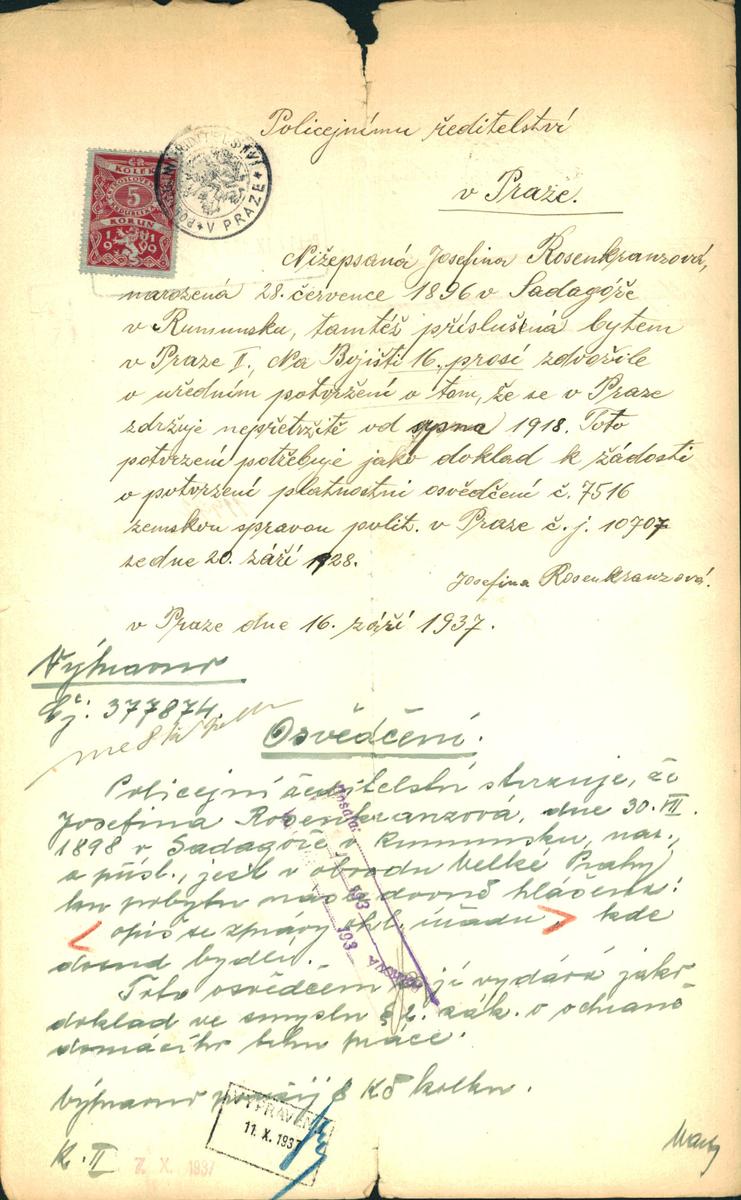 Policejnímu ředitelství
v Praze.
ČR
KOLEK
5
KORUN
1919
V PRAZE
Nížepsaná Josefina Rosenkranzová,
narozená 28. července 1896 v Sadagóře
v Rumunsku, tamtéž příslušná bytem
v Praze II., Na Bojišti 16, prosí zdvořile
o úředním potvrzení o tom, že se v Praze
zdržuje nepřetržitě od srpna 1918. Toto
potvrzení potřebuje jako doklad k žádosti
o potvrzení platnostni osvědčení č. 7516
zemskou spravou polit. v Praze č. j. 10707
ze dne 20. září 1928.
Josefina Rosenkranzová.
v Praze dne 16. září 1937.
Výhradně
Čj: 377874.
Osvědčení.
Policejní ředitelství stvrzuje, že
Josefina Rosenkranzová, dne 30. VII.
1898 v Sadagóře v Rumunsku, nar.,
a přísl., jest v obvodu Velké Prahy
ku pobytu následovně hlášena:
< opis ze zprávy ohl. úřadu > kde
dosud bydlí.
Toto osvědčení se jí vydává jako
doklad ve smyslu § 2. zák. o ochraně
domácího trhu práce.
8 Kč kolku.
VYPRAVENO
11. X. 1937
K. II
7. X. 1937